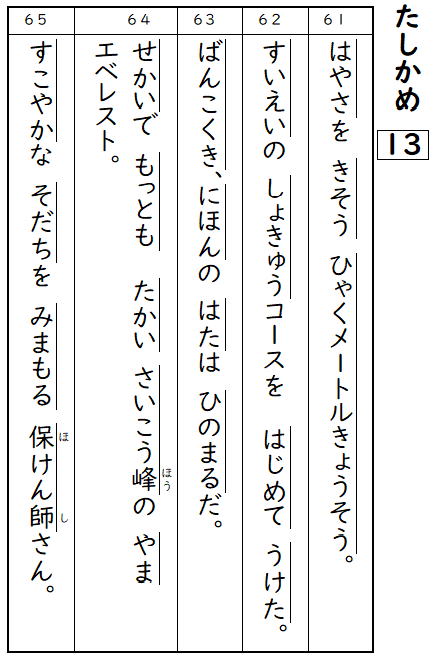 たしかめ
13
61
はやさを きそう ひゃくメートルきょうそう。
62
すいえいの しょきゅうコースを はじめて うけた。
63
ばんこくき、にほんの はたは ひのまるだ。
64
せかいで もっとも たかい さいこう峰の やま
ほう
エベレスト。
65
すこやかな そだちを みまもる 保けん師さん。
ほ
し